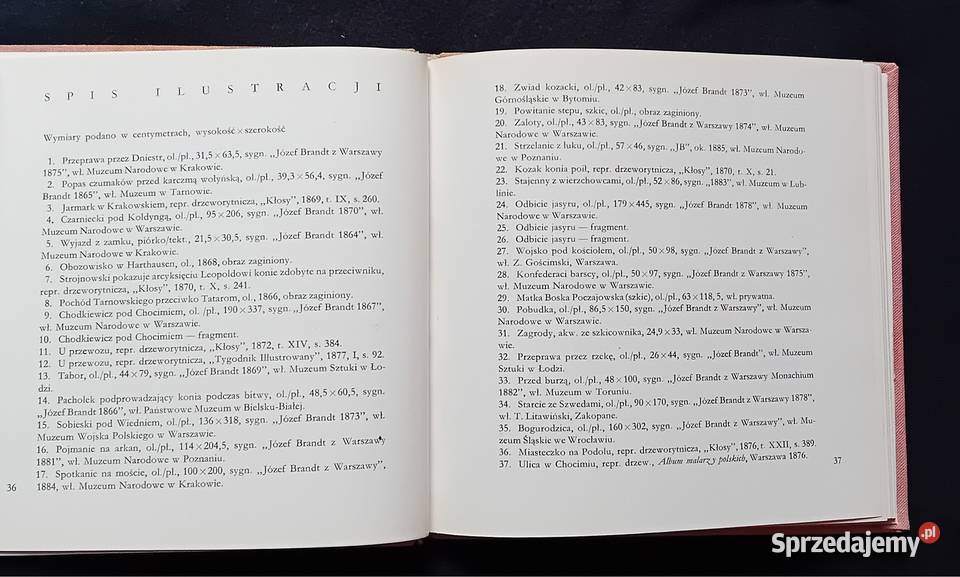 SPIS ILUSTRACJI
Wymiary podano w centymetrach, wysokość × szerokość
1. Przeprawa przez Dniestr, ol./pł., 31,5 × 63,5, sygn. „Józef Brandt z Warszawy
1875”, wł. Muzeum Narodowe w Krakowie.
2. Popas czumaków przed karczmą wołyńską, ol./pł., 39,3 × 56,4, sygn. „Józef
Brandt 1865”, wł. Muzeum w Tarnowie.
3. Jarmark w Krakowskiem, repr. drzeworytnicza, „Kłosy”, 1869, t. IX, s. 260.
4. Czarniecki pod Koldyngą, ol./pł., 95 × 206, sygn. „Józef Brandt 1870”, wł.
Muzeum Narodowe w Warszawie.
5. Wyjazd z zamku, piórko/tekt., 21,5 × 30,5, sygn. „Józef Brandt 1864”, wł.
Muzeum Narodowe w Krakowie.
6. Obozowisko w Harthausen, ol., 1868, obraz zaginiony.
7. Strojnowski pokazuje arcyksięciu Leopoldowi konie zdobyte na przeciwniku,
repr. drzeworytnicza, „Kłosy”, 1870, t. X, s. 241.
8. Pochód Tarnowskiego przeciwko Tatarom, ol., 1866, obraz zaginiony.
9. Chodkiewicz pod Chocimiem, ol. /pł., 190 × 337, sygn. „Józef Brandt 1867”,
wł. Muzeum Narodowe w Warszawie.
10. Chodkiewicz pod Chocimiem — fragment.
11. U przewozu, repr. drzeworytnicza, „Kłosy”, 1872, t. XIV, s. 384.
12. U przewozu, repr. drzeworytnicza, „Tygodnik Illustrowany”, 1877, I, s. 92.
13. Tabor, ol./pł., 44 × 79, sygn. „Józef Brandt 1869”, wł. Muzeum Sztuki w Ło-
dzi.
14. Pachołek podprowadzający konia podczas bitwy, ol./pł., 48,5 × 60,5, sygn.
„Józef Brandt 1866”, wł. Państwowe Muzeum w Bielsku-Białej.
15. Sobieski pod Wiedniem, ol./pł., 136 × 318, sygn. „Józef Brandt 1873”, wł.
Muzeum Wojska Polskiego w Warszawie.
16. Pojmanie na arkan, ol./pł., 114 × 204,5, sygn. „Józef Brandt z Warszawy
1881”, wł. Muzeum Narodowe w Poznaniu.
17. Spotkanie na moście, ol./pł., 100 × 200, sygn. „Józef Brandt z Warszawy”,
1884, wł. Muzeum Narodowe w Krakowie.
36
18. Zwiad kozacki, ol./pł., 42 × 83, sygn. „Józef Brandt 1873”, wł. Muzeum
Górnośląskie w Bytomiu.
19. Powitanie stepu, szkic, ol./pł., obraz zaginiony.
20. Zaloty, ol./pł., 43 × 83, sygn. „Józef Brandt z Warszawy 1874”, wł. Muzeum
Narodowe w Warszawie.
21. Strzelanie z łuku, ol./pł., 57 × 46, sygn. „JB”, ok. 1885, wł. Muzeum Narodo-
we w Poznaniu.
22. Kozak konia poił, repr. drzeworytnicza, „Kłosy”, 1870, t. X, s. 21.
23. Stajenny z wierzchowcami, ol./pł., 52 × 86, sygn. „1883”, wł. Muzeum w Lub-
linie.
24. Odbicie jasyru, ol./pł., 179 × 445, sygn. „Józef Brandt 1878”, wł. Muzeum
Narodowe w Warszawie.
25. Odbicie jasyru — fragment.
26. Odbicie jasyru — fragment.
27. Wojsko pod kościołem, ol./pł., 50 × 98, sygn. „Józef Brandt z Warszawy”,
wł. Z. Gościmski, Warszawa.
28. Konfederaci barscy, ol./pł., 50 × 97, sygn. „Józef Brandt z Warszawy 1875”,
wł. Muzeum Narodowe w Warszawie.
29. Matka Boska Poczajowska (szkic), ol./pł., 63 × 118,5, wł. prywatna.
30. Pobudka, ol./pł., 86,5 × 150, sygn. „Józef Brandt z Warszawy”, wł. Muzeum
Narodowe w Warszawie.
31. Zagrody, akw. ze szkicownika, 24,9 × 33, wł. Muzeum Narodowe w Warsza-
wie.
32. Przeprawa przez rzekę, ol./pł., 26 × 44, sygn. „Józef Brandt”, wł. Muzeum
Sztuki w Łodzi.
33. Przed burzą, ol./pł., 48 × 100, sygn. „Józef Brandt z Warszawy Monachium
1882”, wł. Muzeum w Toruniu.
34. Starcie ze Szwedami, ol./pł., 90 × 170, sygn. „Józef Brandt z Warszawy 1878”,
wł. T. Litawiński, Zakopane.
35. Bogurodzica, ol./pł., 160 × 302, sygn. „Józef Brandt z Warszawy”, wł. Mu-
zeum Śląskie we Wrocławiu.
36. Miasteczko na Podolu, repr. drzeworytnicza, „Kłosy”, 1876, t. XXII, s. 389.
37. Ulica w Chocimiu, repr. drzew., Album malarzy polskich, Warszawa 1876.
37
Sprzedajemy.pl